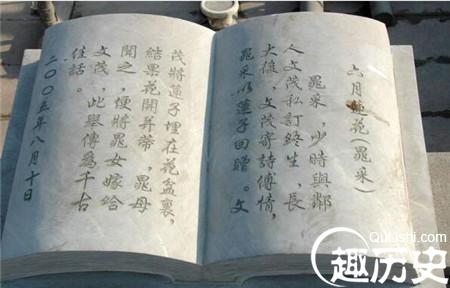 六月蓮花(晁采)
晁采，少時與鄰
人文茂私訂終生，長
大後，文茂寄詩傅情，
晁采以蓮子回贈。文
茂將蓮子埋在花盆裏，
結果花開并蒂，晁母
聞之，便將晁女嫁給
文茂，此舉傳爲千古
佳話。
二〇〇五年八月十日
Qulishi.com
趣历史